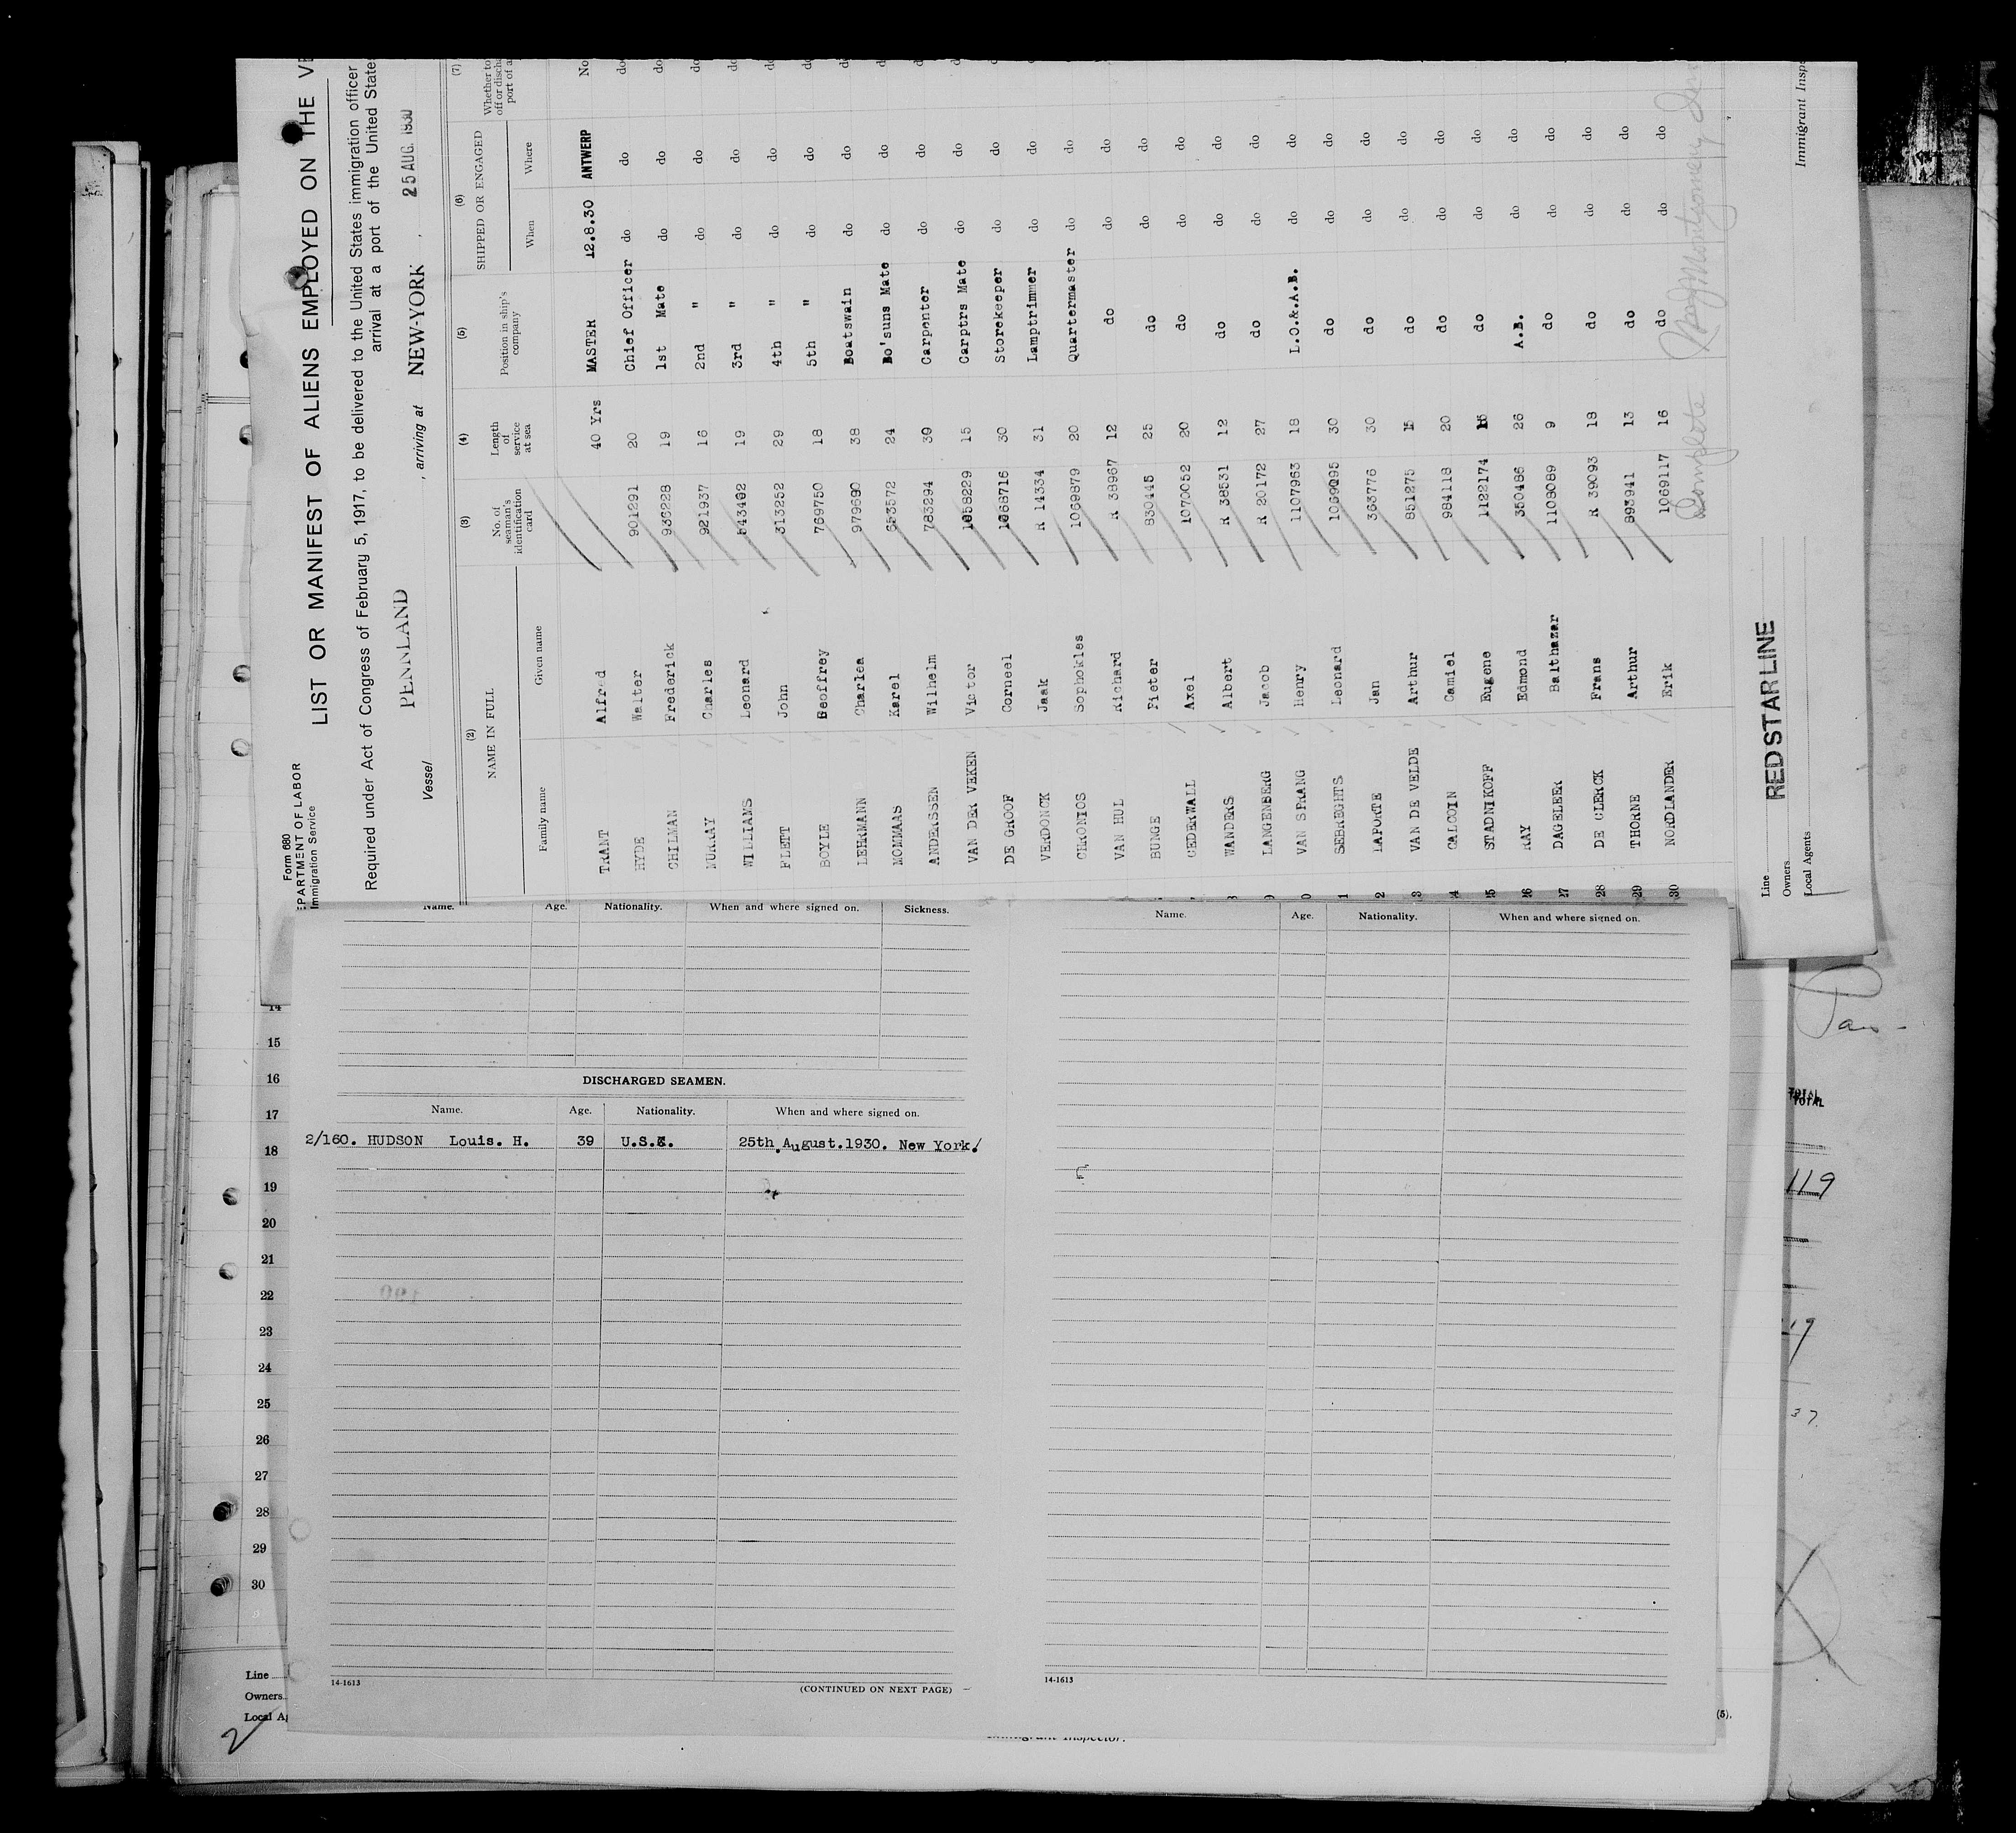 Form 680
DEPARTMENT OF LABOR
Immigration Service
LIST OR MANIFEST OF ALIENS EMPLOYED ON THE VE
Required under Act of Congress of February 5, 1917, to be delivered to the United States immigration officer
arrival at a port of the United States
Vessel PENNLAND, arriving at NEW-YORK, 25 AUG. 1930
(2) (3) (4) (5) (6) (7)
NAME IN FULL No. of seaman's identification card Length of service at sea Position in ship's company SHIPPED OR ENGAGED Whether to
Family name Given name When Where
TRANT Alfred 40 Yrs MASTER 12.8.30 ANTWERP No
HYDE Walter 901291 20 Chief Officer do do do
CHILMAN Frederick 936228 19 1st Mate do do do
MURRAY Charles 921937 16 2nd " do do do
WILLIAMS Leonard 543402 19 3rd " do do do
FLETT John 313252 29 4th " do do do
BOYLE Geoffrey 769750 18 5th " do do do
LEHRMANN Charles 979690 38 Boatswain do do do
MOMMAAS Karel 653572 24 Bo'suns Mate do do do
ANDERSSEN Wilhelm 783294 39 Carpenter do do do
VAN DER VEKEN Victor 1058229 15 Carptrs Mate do do do
DE GROOF Corneel 1068716 30 Storekeeper do do do
VERDONCK Jaak R 14334 31 Lamptrimmer do do do
CHRONIOS Sophokles 1069879 20 Quartermaster do do do
VAN HUL Richard R 38967 12 do do do do
BUNGE Pieter 830445 25 do do do do
CEDERWALL Axel 1070052 20 do do do do
WANDERS Albert R 38531 12 do do do do
LANGENBERG Jacob R 20172 27 do do do do
VAN SPRANG Henry 1107953 18 L.O.&.A.B. do do do
SEBREGHTS Leonard 1069095 30 do do do do
LAPORTE Jan 363776 30 do do do do
VAN DE VELDE Arthur 851275 15 do do do do
24 CALCOIN Camiel 984118 20 do do do do
25 STADNIKOFF Eugene 1122174 do do do do
26 RAY Edmond 350486 26 A.B. do do do
27 DAGELEER Balthazar 1108089 9 do do do do
28 DE CLERCK Frans R 39093 18 do do do do
29 THORNE Arthur 893941 13 do do do do
30 NORDLANDER Erik 1069117 16 do do do do
Complete
Line RED STAR LINE
Owners
Local Agents
Immigrant Inspe
Name. Age. Nationality. When and where signed on. Sickness.
DISCHARGED SEAMEN.
Name. Age. Nationality. When and where signed on.
2/160. HUDSON Louis. H. 39 U.S.A. 25th August.1930. New York.
14-1613
(CONTINUED ON NEXT PAGE)
Name. Age. Nationality. When and where signed on.
14-1613
14
15
16
17
18
19
20
21
22
23
24
25
26
27
28
29
30
Line
Owners
Local Ag
2
Immigrant Inspector.
(5).
TOTAL
119
37